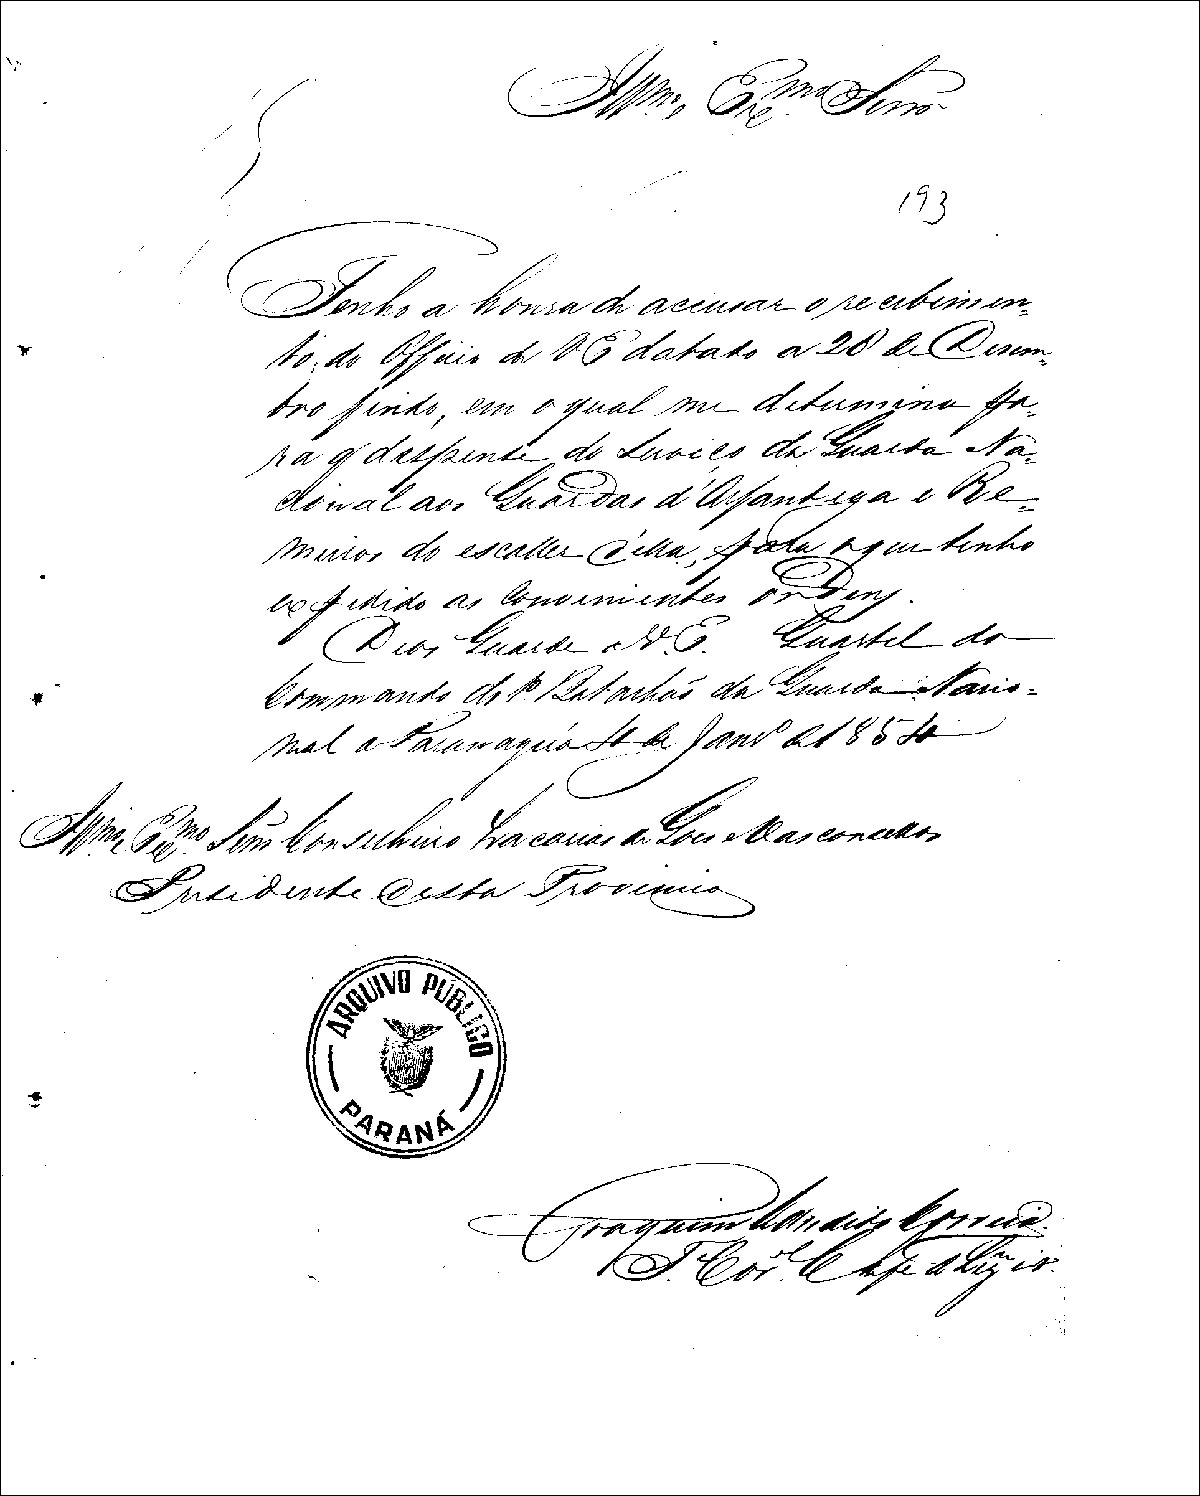 Illmo. Exmo. Senro
193
Tenho a honra de accusar o recebimen-
to, do Officio de VE datado a 20 de Desem-
bro findo, em o qual me determina pa-
ra q' despense do Serviço da Guarda Na-
cional aos Guardas d'Alfandega e Re-
meiros do escaller d'ella, para o que tenho
expedido as Convenientes ordens.
Deos Guarde a V.E. Quartel do
Commando do Batalhão da Guarda Nacio-
nal de Paranaguá 4 de Janro. de 1854
Illmo. Exmo. Senr. Conselheiro Zacarias de Goes e Vasconcellos
Presidente desta Provincia
ARQUIVO PÚBLICO
PARANÁ
Joaquim Candido Correia
Te. Corel. Chefe da Legião